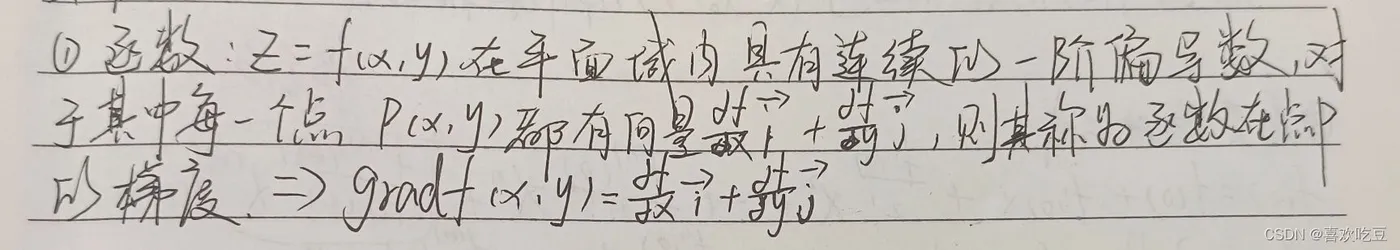 ① 函数:Z=f(x,y)在平面域内具有连续的一阶偏导数,对
于其中每一个点 P(x,y)都有向量 ∂f/∂x i⃗ + ∂f/∂y j⃗,则其称为函数在点P
的梯度. ⇒ gradf(x,y)=∂f/∂x i⃗+∂f/∂y j⃗
CSDN @喜欢吃豆